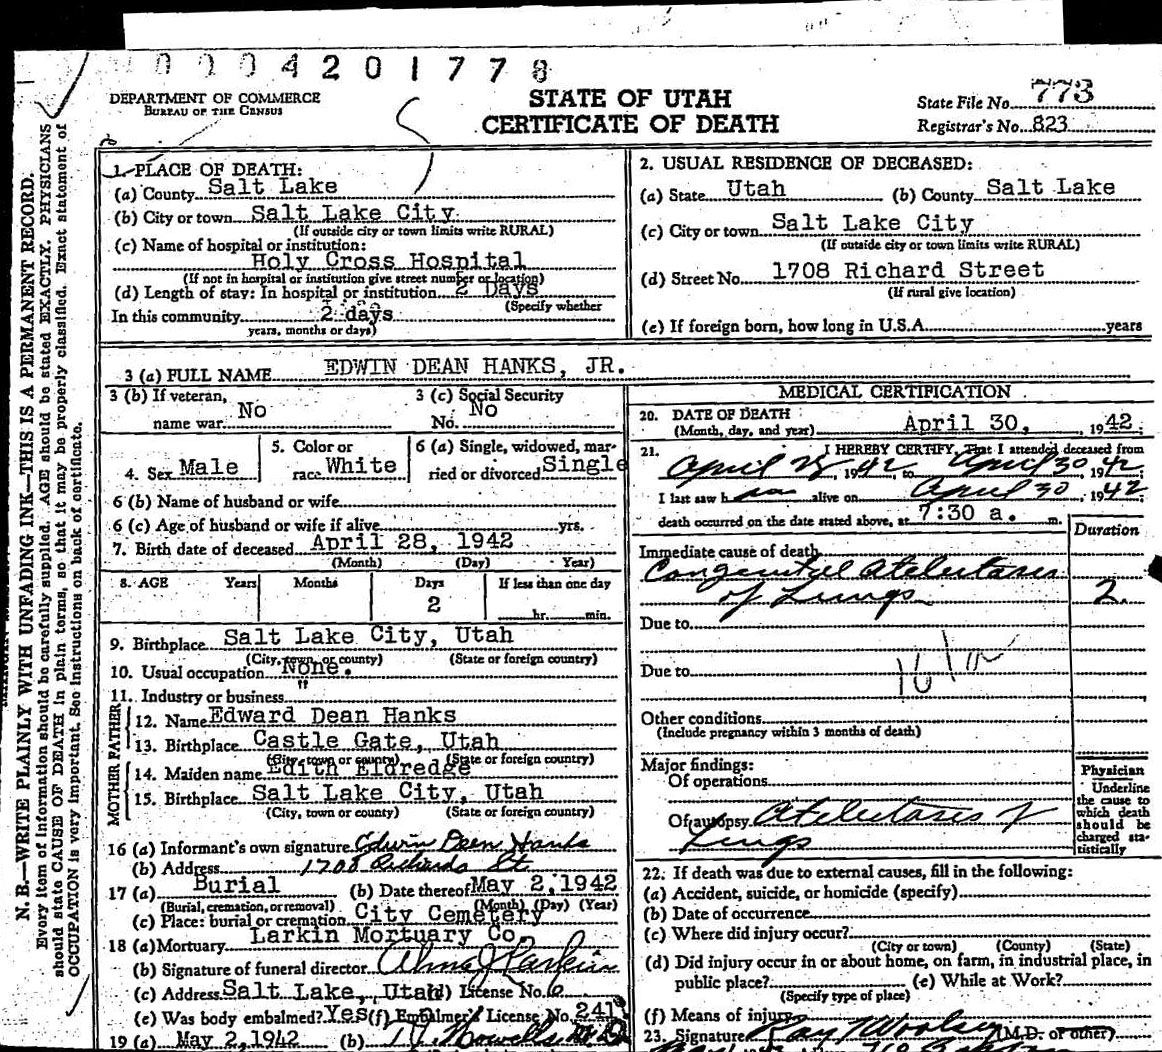 0004201778
DEPARTMENT OF COMMERCE
BUREAU OF THE CENSUS
STATE OF UTAH
CERTIFICATE OF DEATH
State File No. 773
Registrar's No. 823
N. B.—WRITE PLAINLY WITH UNFADING INK—THIS IS A PERMANENT RECORD.
Every item of information should be carefully supplied. AGE should be stated EXACTLY. PHYSICIANS
should state CAUSE OF DEATH in plain terms, so that it may be properly classified. Exact statement of
OCCUPATION is very important. See instructions on back of certificate.
1. PLACE OF DEATH:
(a) County Salt Lake
(b) City or town Salt Lake City
(If outside city or town limits write RURAL)
(c) Name of hospital or institution:
Holy Cross Hospital
(If not in hospital or institution give street number or location)
(d) Length of stay: In hospital or institution 2 Days
(Specify whether
In this community 2 days
years, months or days)
2. USUAL RESIDENCE OF DECEASED:
(a) State Utah (b) County Salt Lake
(c) City or town Salt Lake City
(If outside city or town limits write RURAL)
(d) Street No. 1708 Richard Street
(If rural give location)
(e) If foreign born, how long in U.S.A. years
3 (a) FULL NAME EDWIN DEAN HANKS, JR.
3 (b) If veteran, No
name war
3 (c) Social Security
No. No
4. Sex Male
5. Color or
race White
6 (a) Single, widowed, mar-
ried or divorced Single
6 (b) Name of husband or wife
6 (c) Age of husband or wife if alive yrs.
7. Birth date of deceased April 28, 1942
(Month) (Day) Year)
8. AGE Years Months Days If less than one day
2
hr. min.
9. Birthplace Salt Lake City, Utah
(City, town or county) (State or foreign country)
10. Usual occupation None.
11. Industry or business "
FATHER
12. Name Edward Dean Hanks
13. Birthplace Castle Gate, Utah
(City, town or county) (State or foreign country)
MOTHER
14. Maiden name Edith Eldredge
15. Birthplace Salt Lake City, Utah
(City, town or county) (State or foreign country)
16 (a) Informant's own signature Edwin Dean Hanks
(b) Address 1708 Richards St
17 (a) Burial (b) Date thereof May 2, 1942
(Burial, cremation, or removal) (Month) (Day) (Year)
(c) Place: burial or cremation City Cemetery
18 (a) Mortuary Larkin Mortuary Co.
(b) Signature of funeral director Alma J Larkin
(c) Address Salt Lake, Utah (d) License No. 6
(e) Was body embalmed? Yes (f) Embalmer's License No. 241
19 (a) May 2, 1942 (b)
MEDICAL CERTIFICATION
20. DATE OF DEATH
(Month, day, and year) April 30, 1942
21. I HEREBY CERTIFY, That I attended deceased from
April 28, 1942 to April 30 1942
I last saw h alive on April 30 1942
death occurred on the date stated above, at 7:30 a. m.
Duration
Immediate cause of death
Congenital Atelectases
of Lungs 2
Due to
Due to
Other conditions
(Include pregnancy within 3 months of death)
Major findings:
Of operations
Of autopsy Atelectases of
Lungs
Physician
Underline
the cause to
which death
should be
charged sta-
tistically
22. If death was due to external causes, fill in the following:
(a) Accident, suicide, or homicide (specify)
(b) Date of occurrence
(c) Where did injury occur?
(City or town) (County) (State)
(d) Did injury occur in or about home, on farm, in industrial place, in
public place? (e) While at Work?
(Specify type of place)
(f) Means of injury
23. Signature Ray T Woolsey (M.D. or other)